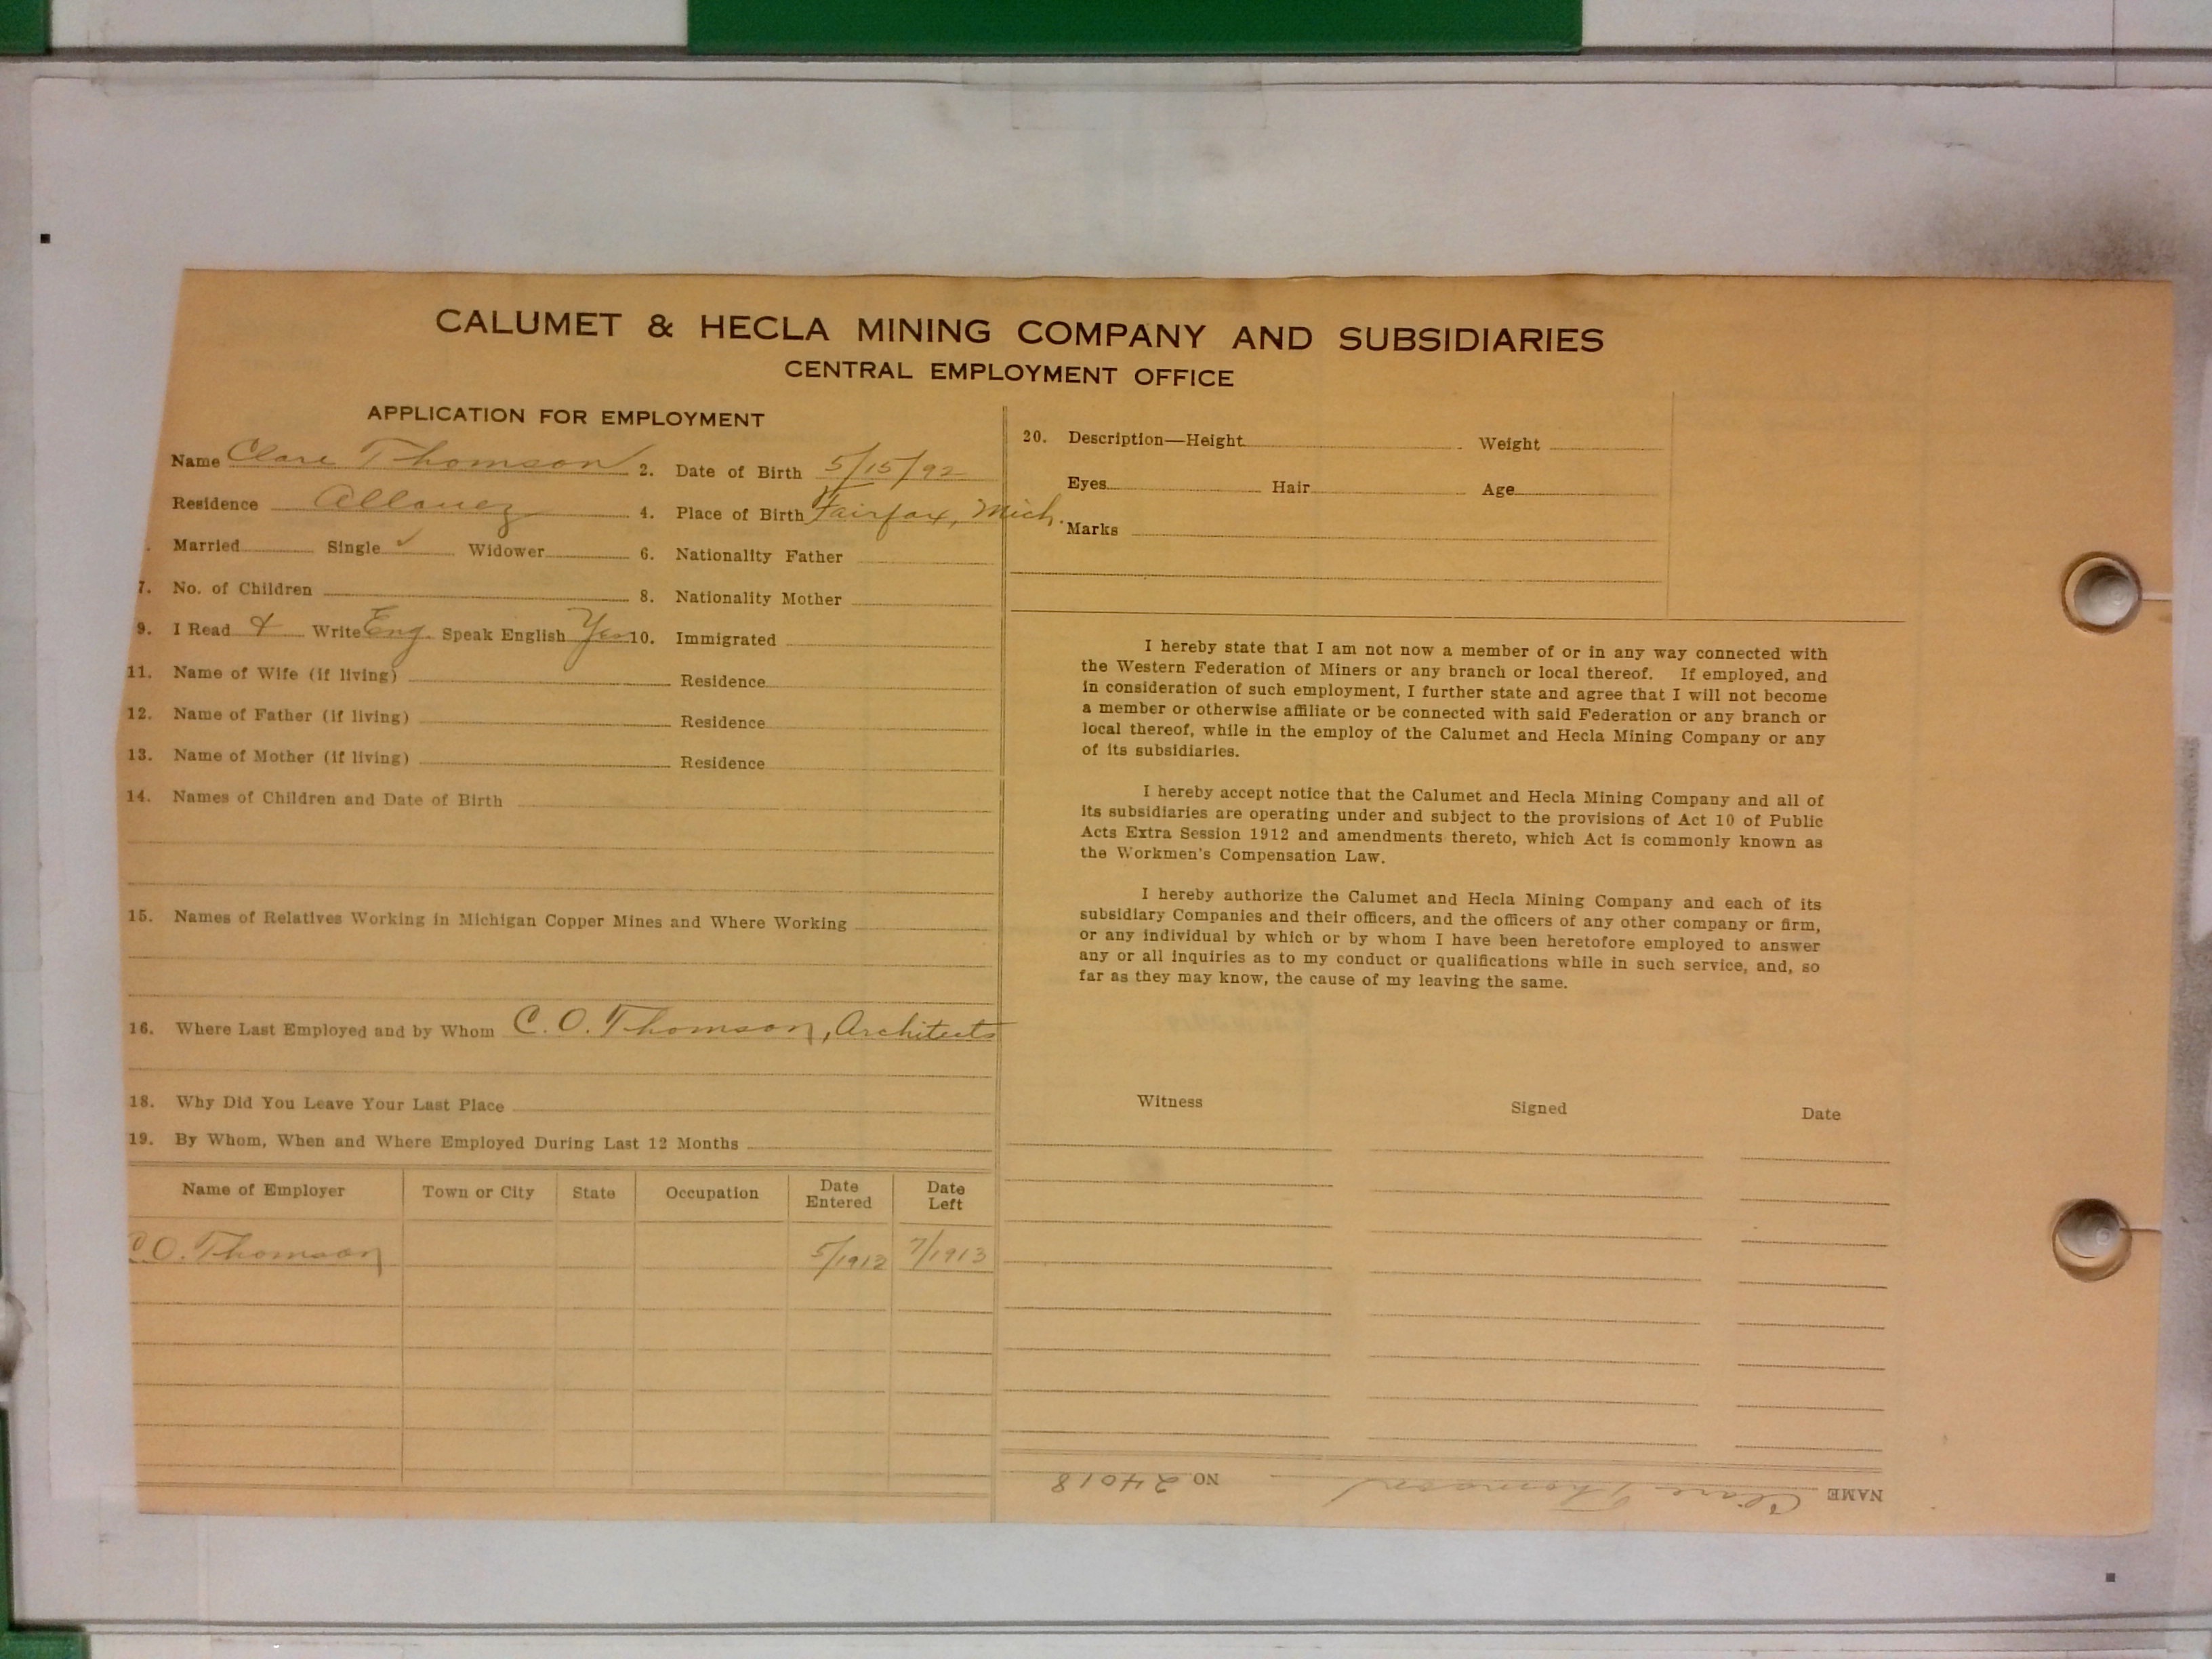 CALUMET & HECLA MINING COMPANY AND SUBSIDIARIES
CENTRAL EMPLOYMENT OFFICE
APPLICATION FOR EMPLOYMENT
Name Clare Thomson 2. Date of Birth 5/15/92
Residence Allouez 4. Place of Birth Fairfax, Mich.
Married Single ✓ Widower 6. Nationality Father
7. No. of Children 8. Nationality Mother
9. I Read & Write Eng. Speak English Yes 10. Immigrated
11. Name of Wife (if living) Residence
12. Name of Father (if living) Residence
13. Name of Mother (if living) Residence
14. Names of Children and Date of Birth
15. Names of Relatives Working in Michigan Copper Mines and Where Working
16. Where Last Employed and by Whom C. O. Thomson, Architects
18. Why Did You Leave Your Last Place
19. By Whom, When and Where Employed During Last 12 Months
Name of Employer Town or City State Occupation Date Entered Date Left
C. O. Thomson 5/1912 7/1913
20. Description—Height Weight
Eyes Hair Age
Marks
I hereby state that I am not now a member of or in any way connected with
the Western Federation of Miners or any branch or local thereof. If employed, and
in consideration of such employment, I further state and agree that I will not become
a member or otherwise affiliate or be connected with said Federation or any branch or
local thereof, while in the employ of the Calumet and Hecla Mining Company or any
of its subsidiaries.
I hereby accept notice that the Calumet and Hecla Mining Company and all of
its subsidiaries are operating under and subject to the provisions of Act 10 of Public
Acts Extra Session 1912 and amendments thereto, which Act is commonly known as
the Workmen's Compensation Law.
I hereby authorize the Calumet and Hecla Mining Company and each of its
subsidiary Companies and their officers, and the officers of any other company or firm,
or any individual by which or by whom I have been heretofore employed to answer
any or all inquiries as to my conduct or qualifications while in such service, and, so
far as they may know, the cause of my leaving the same.
Witness Signed Date
NAME Clare Thomson NO 24018